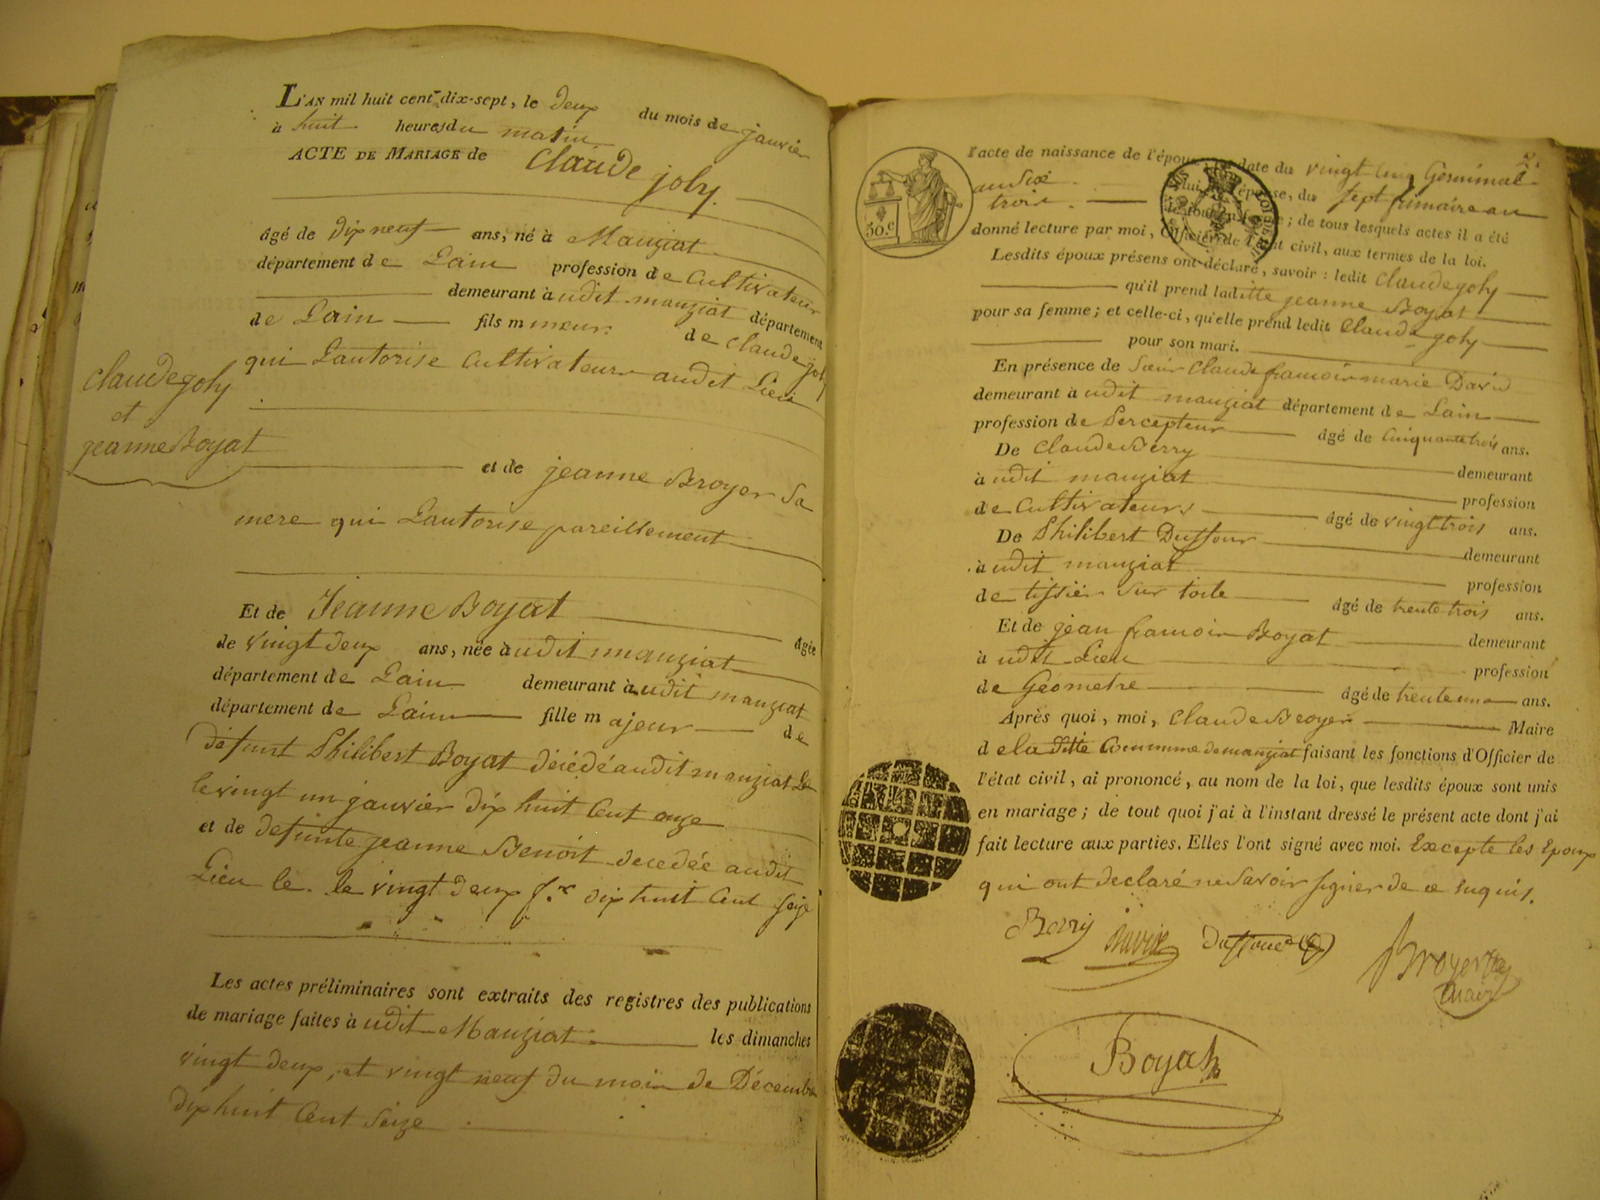 L'AN mil huit cent dix-sept, le deux du mois de janvier
à huit heures du matin
ACTE DE MARIAGE de Claude joly.
âgé de dix neuf ans, né à Manziat
département de Lain profession de Cultivateur
demeurant à udit manziat département
de Lain fils mineur de claude joly
qui Lautorise Cultivateur audit Lieu
Claude joly
et
jeanne Boyat
et de jeanne Broyer Sa
mere qui Lautorise pareillement
Et de Jeanne Boyat âgée
de vingt deux ans, née à udit manziat
département de Lain demeurant à udit manziat
département de Lain fille majeur de
defunt Philibert Boyat décédé audit manziat Le
le vingt un janvier dix huit Cent onze
et de defunte jeanne Benoit decedée audit
Lieu le le vingt deux f.r dix huit Cent seize
Les actes préliminaires sont extraits des registres des publications
de mariage faites à udit Manziat les dimanches
vingt deux, et vingt neuf du mois de Décembre
dix huit Cent Seize
2.
l'acte de naissance de l'époux, en date du vingt cinq Germinal
an Six celui de l'épouse, du sept frimaire an
trois le tout en forme ; de tous lesquels actes il a été
30.c
donné lecture par moi, Officier de l'état civil, aux termes de la loi.
Lesdits époux présens ont déclaré, savoir : ledit Claude joly
qu'il prend laditte jeanne Boyat
pour sa femme ; et celle-ci, qu'elle prend ledit Claude joly
pour son mari.
En présence de Sieur Claude francois marie David
demeurant à udit manziat département de Lain
profession de Percepteur âgé de Cinquante trois ans.
De Claude Berry demeurant
à udit manziat profession
de Cultivateurs âgé de vingt trois ans.
De Philibert Duffour demeurant
à udit manziat profession
de tissier sur toile âgé de trente trois ans.
Et de jean francois Boyat demeurant
à udit Lieu profession
de Géometre âgé de trente un ans.
Après quoi, moi, Claude Broyer Maire
de la ditte Commune de manziat faisant les fonctions d'Officier de
l'état civil, ai prononcé, au nom de la loi, que lesdits époux sont unis
en mariage ; de tout quoi j'ai à l'instant dressé le présent acte dont j'ai
fait lecture aux parties. Elles l'ont signé avec moi. Excepte les Epoux
qui ont declaré ne Savoir signer de ce enquis.
Berry David Duffour Broyer
Maire
Boyat